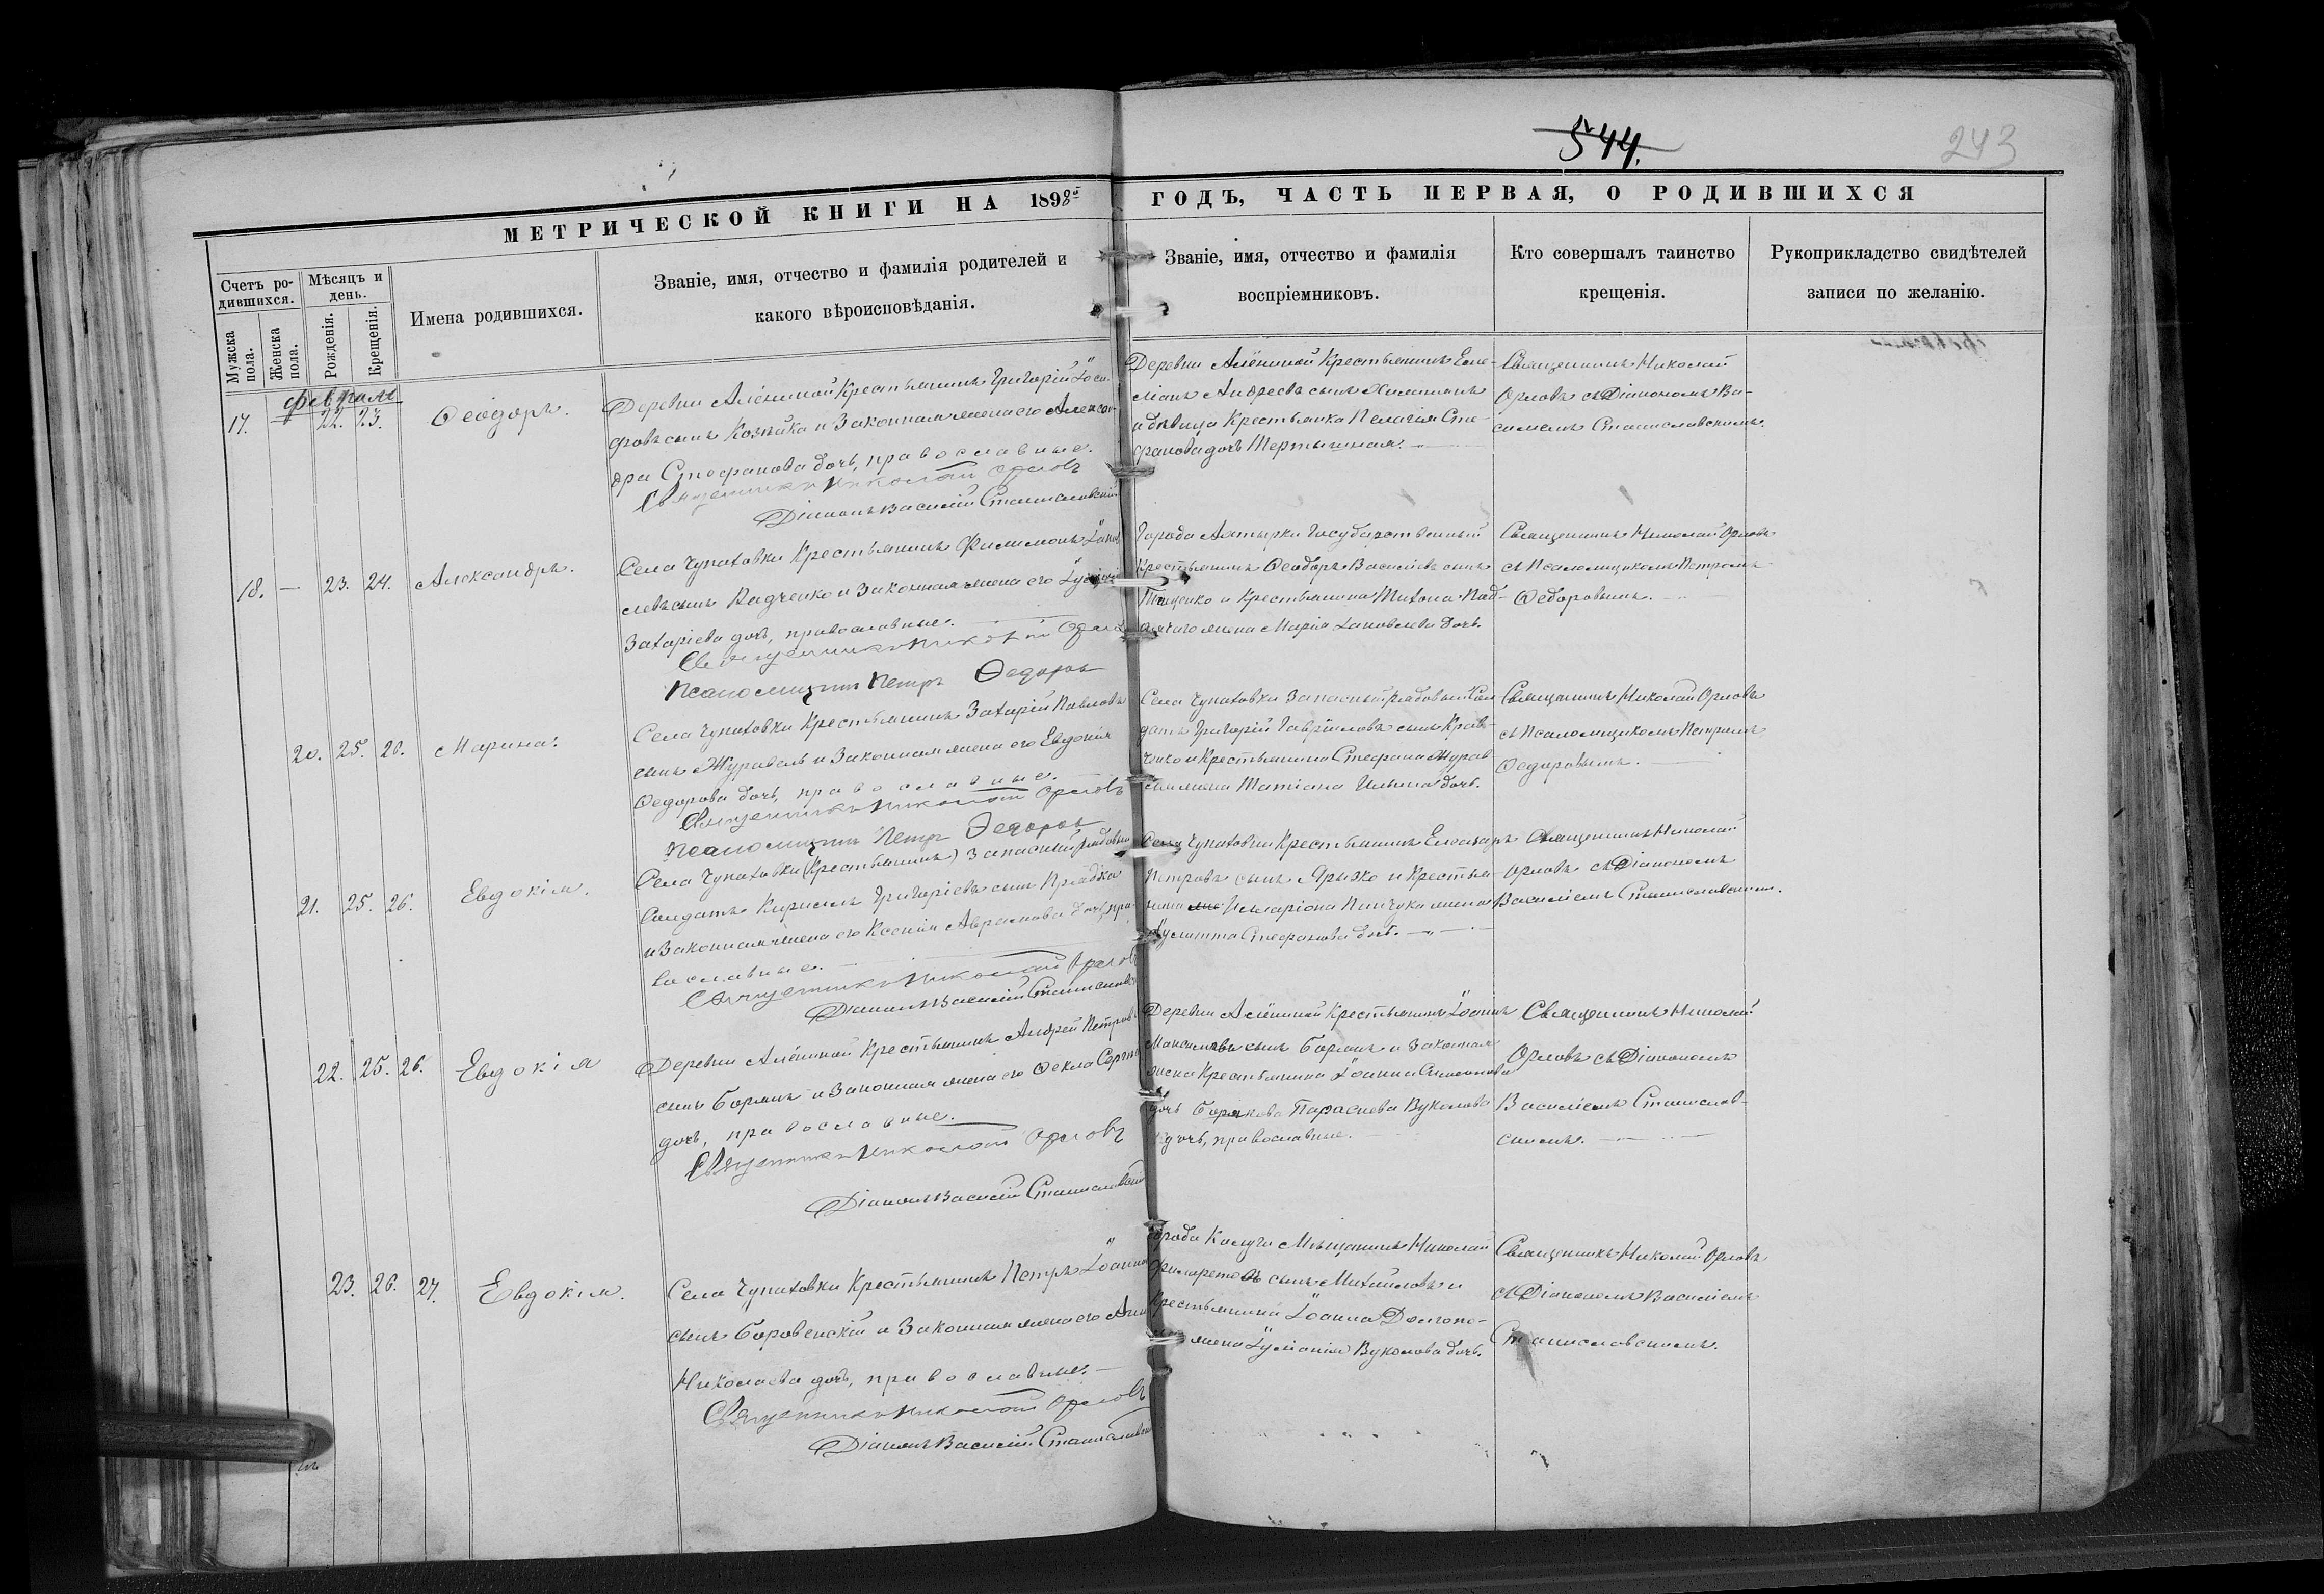 544.
243
МЕТРИЧЕСКОЙ КНИГИ НА 1898й ГОДЪ, ЧАСТЬ ПЕРВАЯ, О РОДИВШИХСЯ
Счетъ родившихся.
Мужска пола.
Женска пола.
Мѣсяцъ и день.
Рожденія.
Крещенія.
Имена родившихся.
Званіе, имя, отчество и фамилія родителей и
какого вѣроисповѣданія.
Званіе, имя, отчество и фамилія
воспріемниковъ.
Кто совершалъ таинство
крещенія.
Рукоприкладство свидѣтелей
записи по желанію.
17. 22. 23. Ѳеодоръ.
Деревни Алёшной Крестьянинъ Григорій Іоси-
фовъ сынъ Козѣйка и Законная жена его Алексан-
дра Стефанова дочь, православные.
Священникъ Николай Орловъ
Діаконъ Василій Станиславскій
Деревни Алёшной Крестьянинъ Еме-
ліанъ Андреевъ сынъ
и дѣвица Крестьянка Пелагія Сте-
фанова дочь
Священникъ Николай
Орловъ съ Діакономъ Ва-
силіемъ Станиславскимъ.
18. — 23. 24. Александръ.
Села Чупаховки Крестьянинъ Филимонъ Іаков-
левъ сынъ Радченко и Законная жена его
Захаріева дочь, православные.
Священникъ Николай Орловъ
Псаломщикъ Петръ Ѳедоровъ
Города Ахтырки Государственный
Крестьянинъ Ѳеодоръ Василіевъ сынъ
и Крестьянина Тихона
жена Марія Іаковлева дочь.
Священникъ Николай Орловъ
съ Псаломщикомъ Петромъ
Ѳедоровымъ.
20. 25. 26. Марина.
Села Чупаховки Крестьянинъ Захарій Павловъ
сынъ Журавель и Законная жена его Евдокія
Ѳедорова дочь, православные.
Священникъ Николай Орловъ
Псаломщикъ Петръ Ѳедоровъ
Села Чупаховки Запасный рядовый Сол-
датъ Григорій Гавріиловъ сынъ Крав-
ченко и Крестьянина Стефана Журав-
жена Татіана Ильина дочь.
Священникъ Николай Орловъ
съ Псаломщикомъ Петромъ
Ѳедоровымъ.
21. 25. 26. Евдокія.
Села Чупаховки (Крестьянинъ) Запасный рядовый
Солдатъ Кириллъ Григоріевъ сынъ Прядка
и Законная жена его Ксенія Аврамова дочь, пра-
вославные.
Священникъ Николай Орловъ
Діаконъ Василій Станиславскій
Села Чупаховки Крестьянинъ Елеазаръ
Петровъ сынъ Ярызко и Крестья-
нина Илларіона Пинчука жена
Іулитта Стефанова дочь.
Священникъ Николай
Орловъ съ Діакономъ
Василіемъ Станиславскимъ.
22. 25. 26. Евдокія
Деревни Алёшной Крестьянинъ Андрей Петровъ
сынъ Борякъ и Законная жена его Ѳекла Сергіева
дочь, православные.
Священникъ Николай Орловъ
Діаконъ Василій Станиславскій
Деревни Алёшной Крестьянинъ Іоаннъ
сынъ Борякъ и Законная
жена Крестьянина Іоанна Симеонова
Борякова Параскева Вуколова
дочь, православные.
Священникъ Николай
Орловъ съ Діакономъ
Василіемъ Станислав-
скимъ.
23. 26. 27. Евдокія.
Села Чупаховки Крестьянинъ Петръ Іоанновъ
сынъ Боровенскій и Законная жена его Анна
Николаева дочь, православные.
Священникъ Николай Орловъ
Діаконъ Василій Станиславскій
Города Калуги Мѣщанинъ Николай
Филаретовъ сынъ Михайловъ и
Крестьянина Іоанна Долгопо-
жена Іуліанія Вуколова дочь.
Священникъ Николай Орловъ
съ Діакономъ Василіемъ
Станиславскимъ.